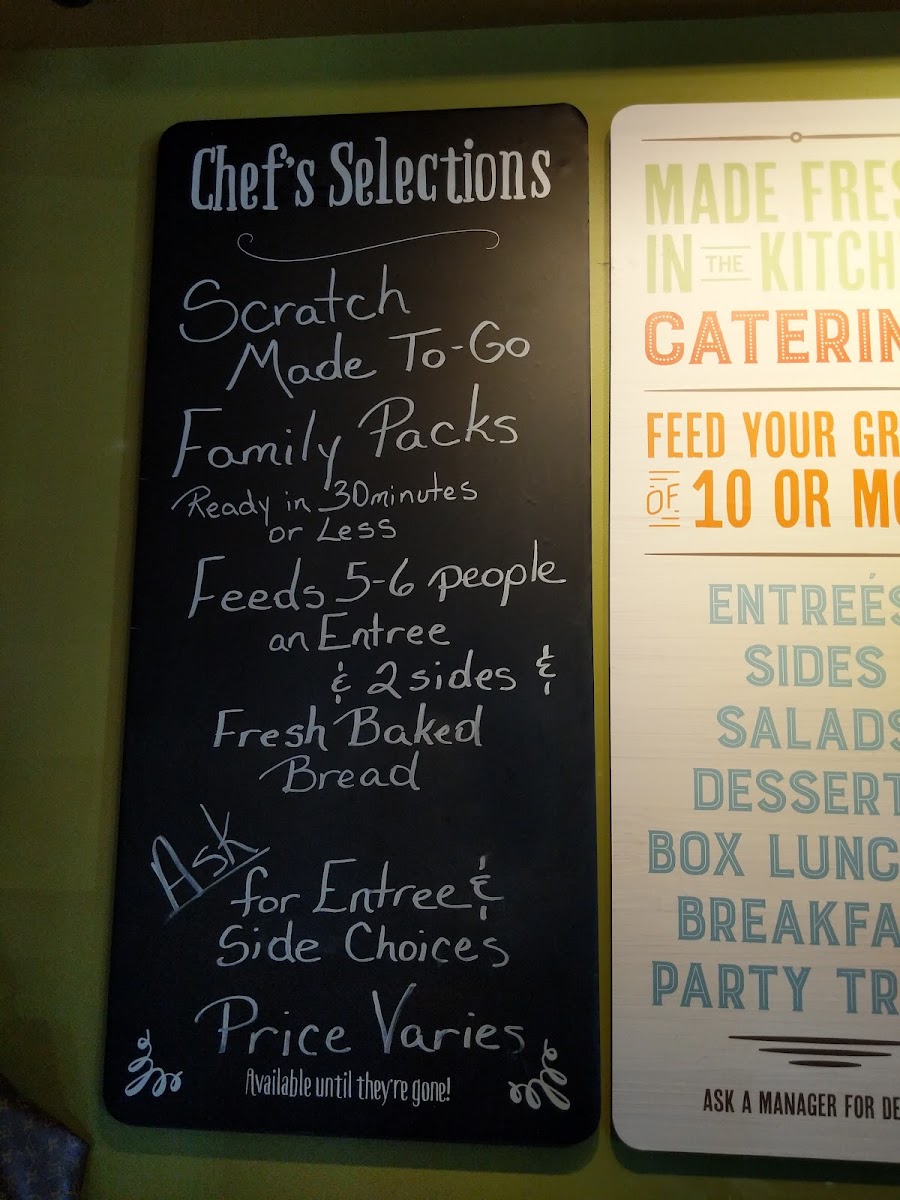 Chef's Selections
Scratch
Made To-Go
Family Packs
Ready in 30minutes
or Less
Feeds 5-6 people
an Entree
& 2 sides &
Fresh Baked
Bread
Ask
for Entree &
Side Choices
Price Varies
Available until they're gone!
MADE FRES
IN THE KITCH
CATERIN
FEED YOUR GR
OF 10 OR MO
ENTREÉS
SIDES
SALADS
DESSERT
BOX LUNC
BREAKFA
PARTY TR
ASK A MANAGER FOR DE